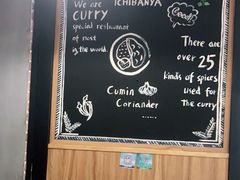 ICHIBANYA
We are
CURRY
special restaurant
of most
in the world.
Good!
There are
over 25
kinds of spices
used for
The curry
Cumin
Coriander